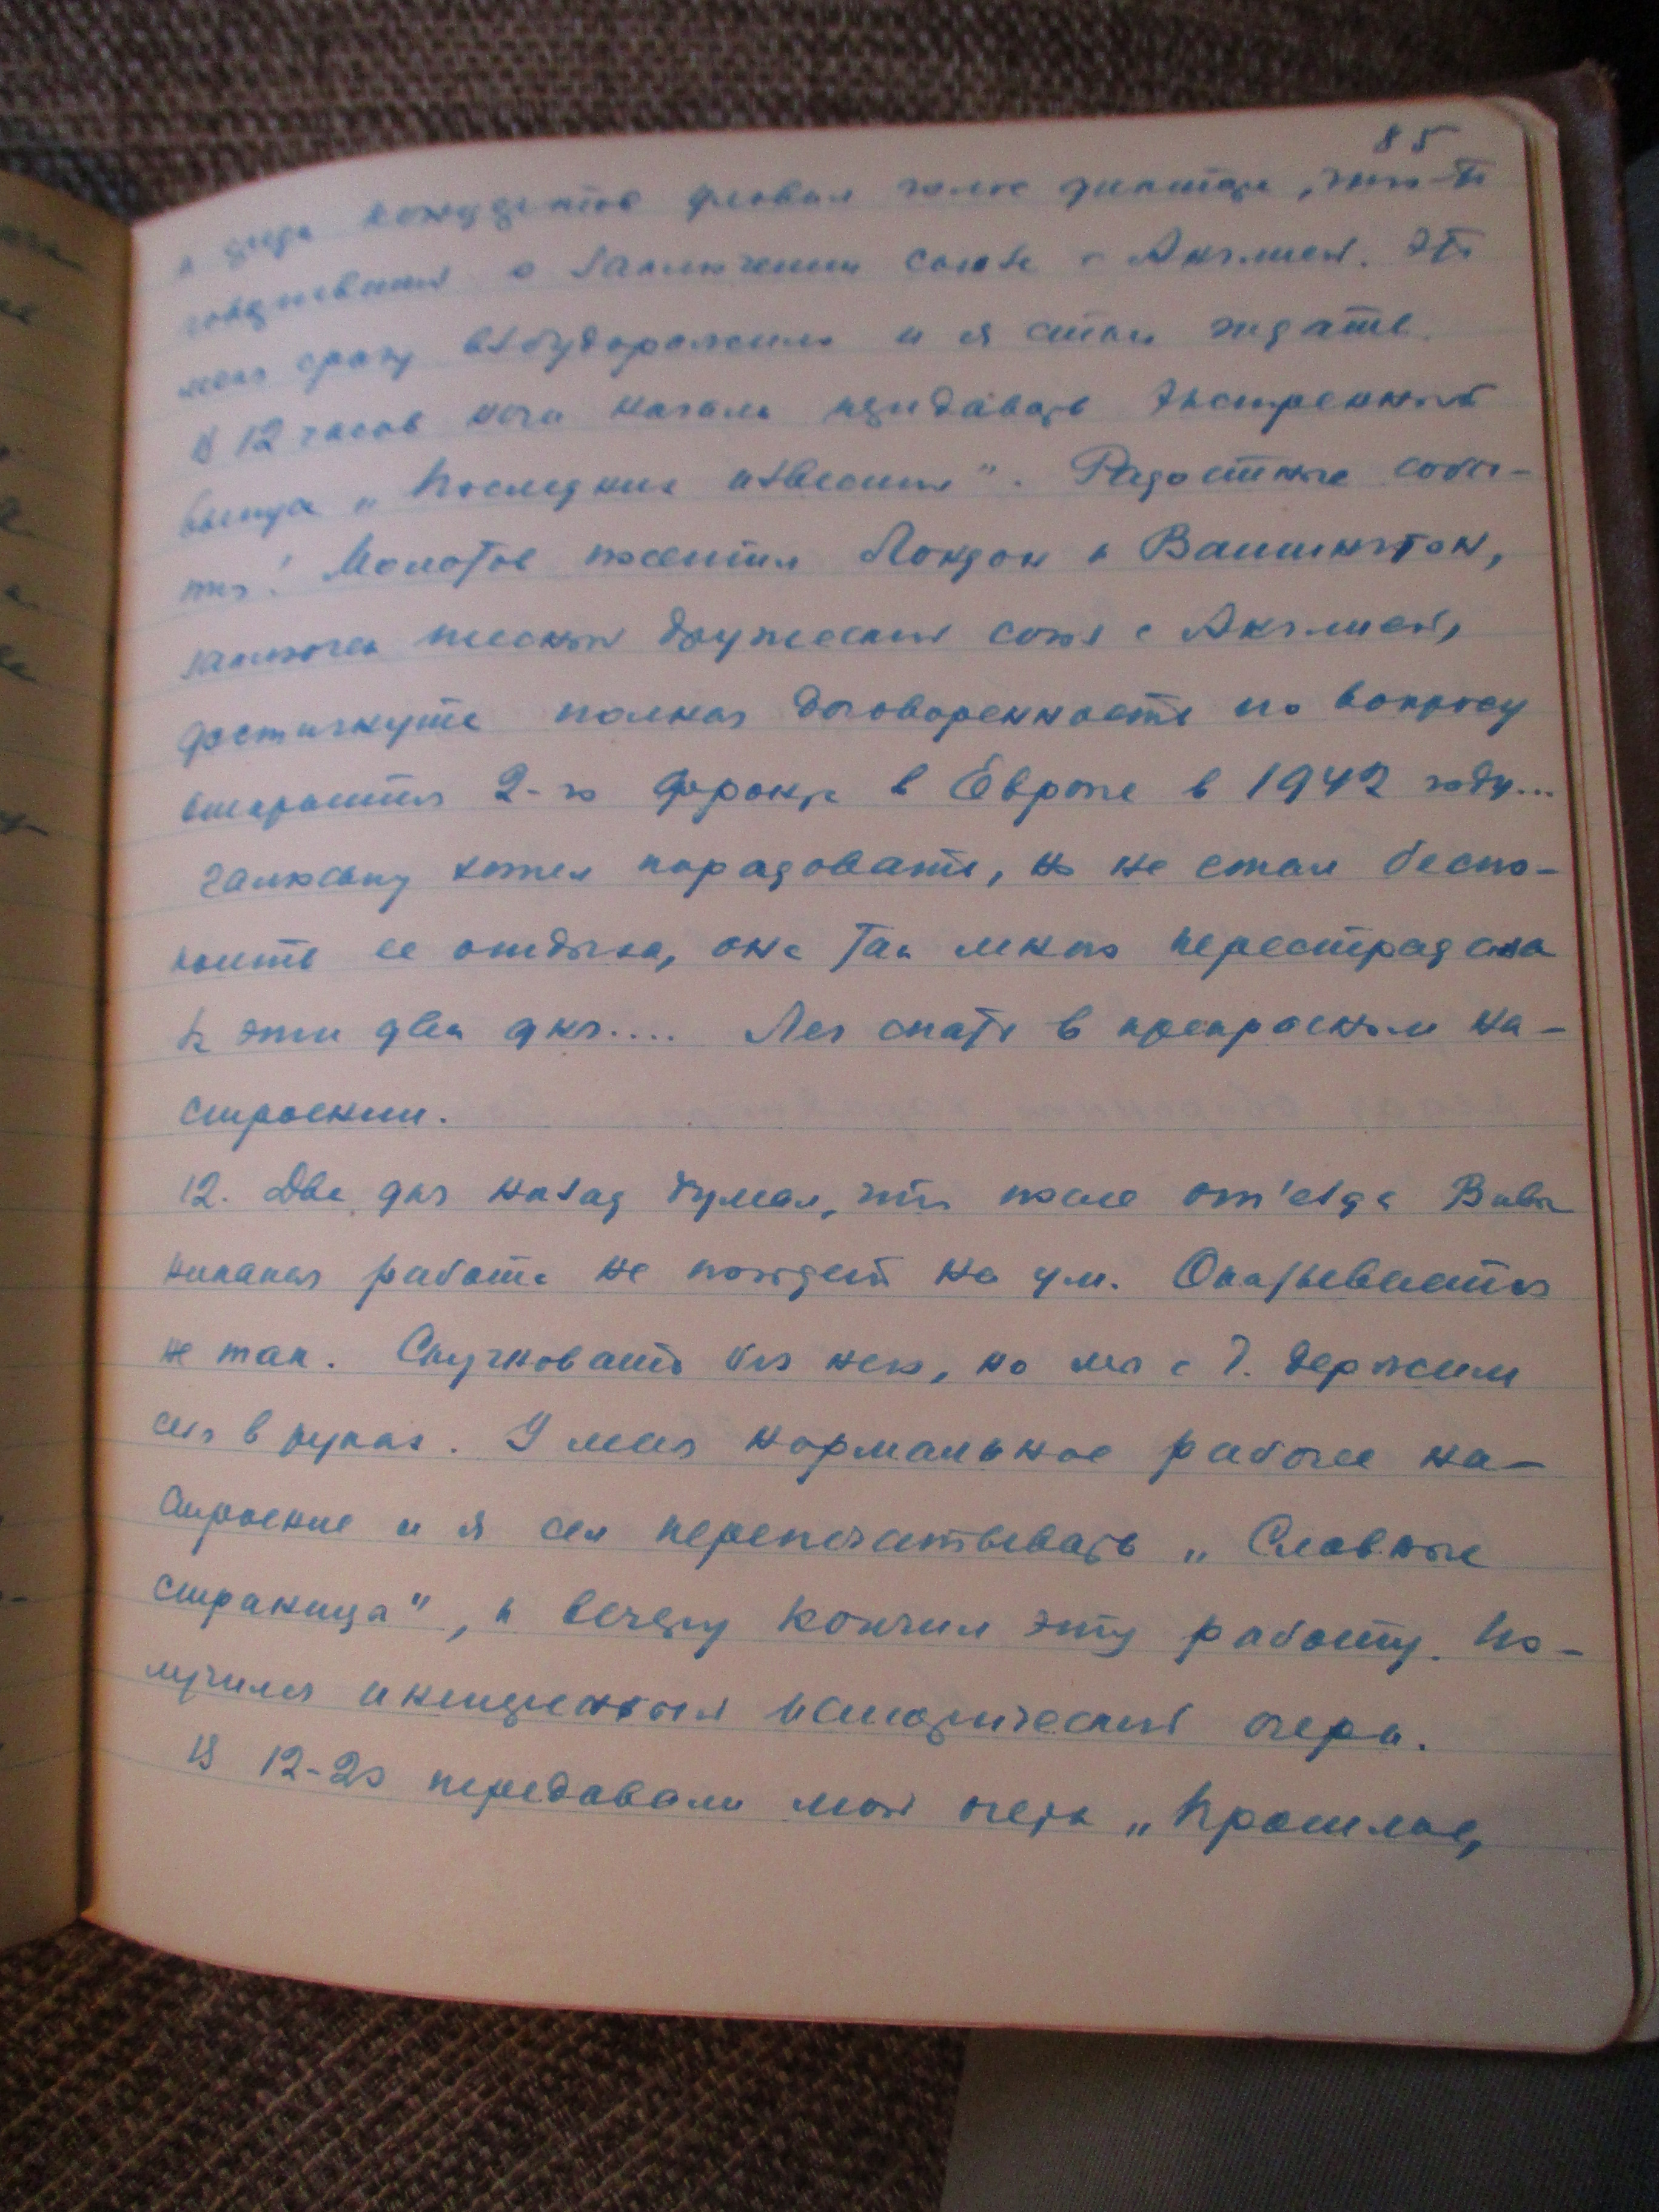 85
и среди концертов уловил голос диктора, что-то
говорившего о заключении союза с Англией. Это
меня сразу взбудоражило и я стал ждать.
В 12 часов ночи начали передавать экстренный
выпуск „Последних известий". Радостные собы-
тия! Молотов посетил Лондон и Вашингтон,
заключен тесный дружеский союз с Англией,
достигнута полная договоренность по вопросу
открытия 2-го фронта в Европе в 1942 году...
Галюську хотел порадовать, но не стал беспо-
коить ее отдыха, она так много перестрадала
за эти два дня.... Лег спать в прекрасном на-
строении.
12. Два дня назад думал, что после от'езда Вивы
никакая работа не пойдет на ум. Оказывается
не так. Скучновато без него, но мы с Г. держим
себя в руках. У меня нормальное рабочее на-
строение и я сел перепечатывать „Славные
страницы", к вечеру кончил эту работу. По-
лучился исторический очерк.
В 12-20 передавали мой очерк „Прошлое,